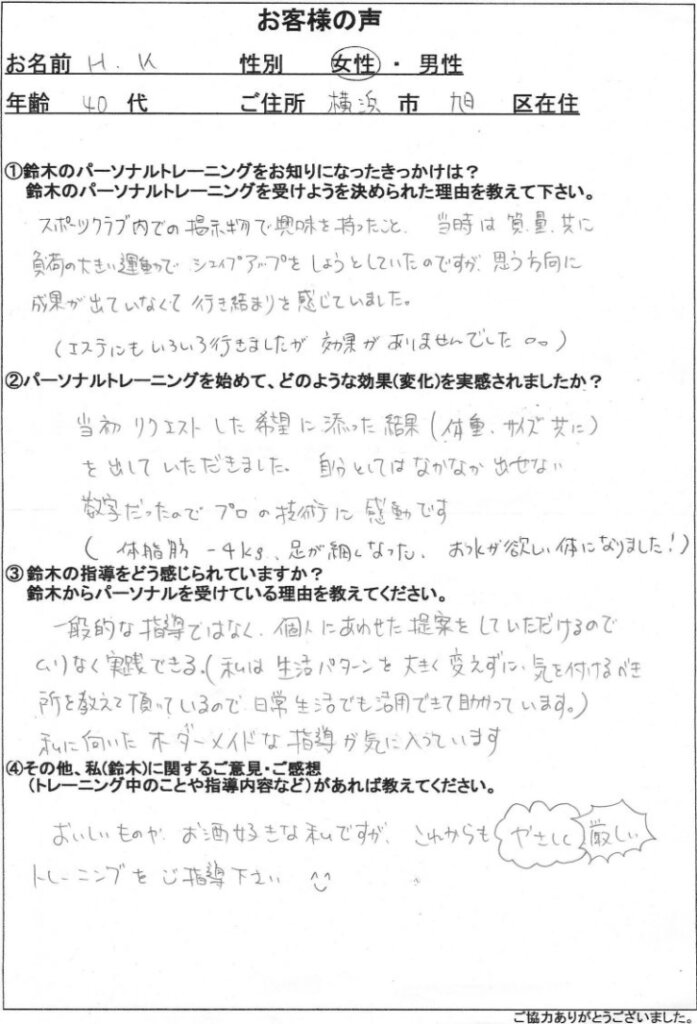 お客様の声
お名前 H.K 性別 女性・男性
年齢 40 代 ご住所 横浜 市 旭 区在住
①鈴木のパーソナルトレーニングをお知りになったきっかけは？
鈴木のパーソナルトレーニングを受けようを決められた理由を教えて下さい。
スポーツクラブ内での掲示物で興味を持ったこと、当時は質、量、共に
負荷の大きい運動でシェイプアップをしようとしていたのですが、思う方向に
成果が出ていなくて行き結まりを感じていました。
(エステにもいろいろ行きましたが効果がありませんでした。。)
②パーソナルトレーニングを始めて、どのような効果(変化)を実感されましたか？
当初リクエストした希望に添った結果(体重、サイズ共に)
を出していただきました。自分としてはなかなか出せない
数字だったのでプロの技術に感動です
(体脂肪 -4kg、足が細くなった、お水が欲しい体になりました！)
③鈴木の指導をどう感じられていますか？
鈴木からパーソナルを受けている理由を教えてください。
一般的な指導ではなく、個人にあわせた提案をしていただけるので
ムリなく実践できる。(私は生活パターンを大きく変えずに、気を付けるべき
所を教えて頂っているので、日常生活でも活用できて助かっています。)
私に向いたオーダーメイドな指導が気に入っています
④その他、私(鈴木)に関するご意見・ご感想
(トレーニング中のことや指導内容など)があれば教えてください。
おいしいものや、お酒好きな私ですが、これからもやさしく厳しい
トレーニングをご指導下さい ^^
ご協力ありがとうございました。